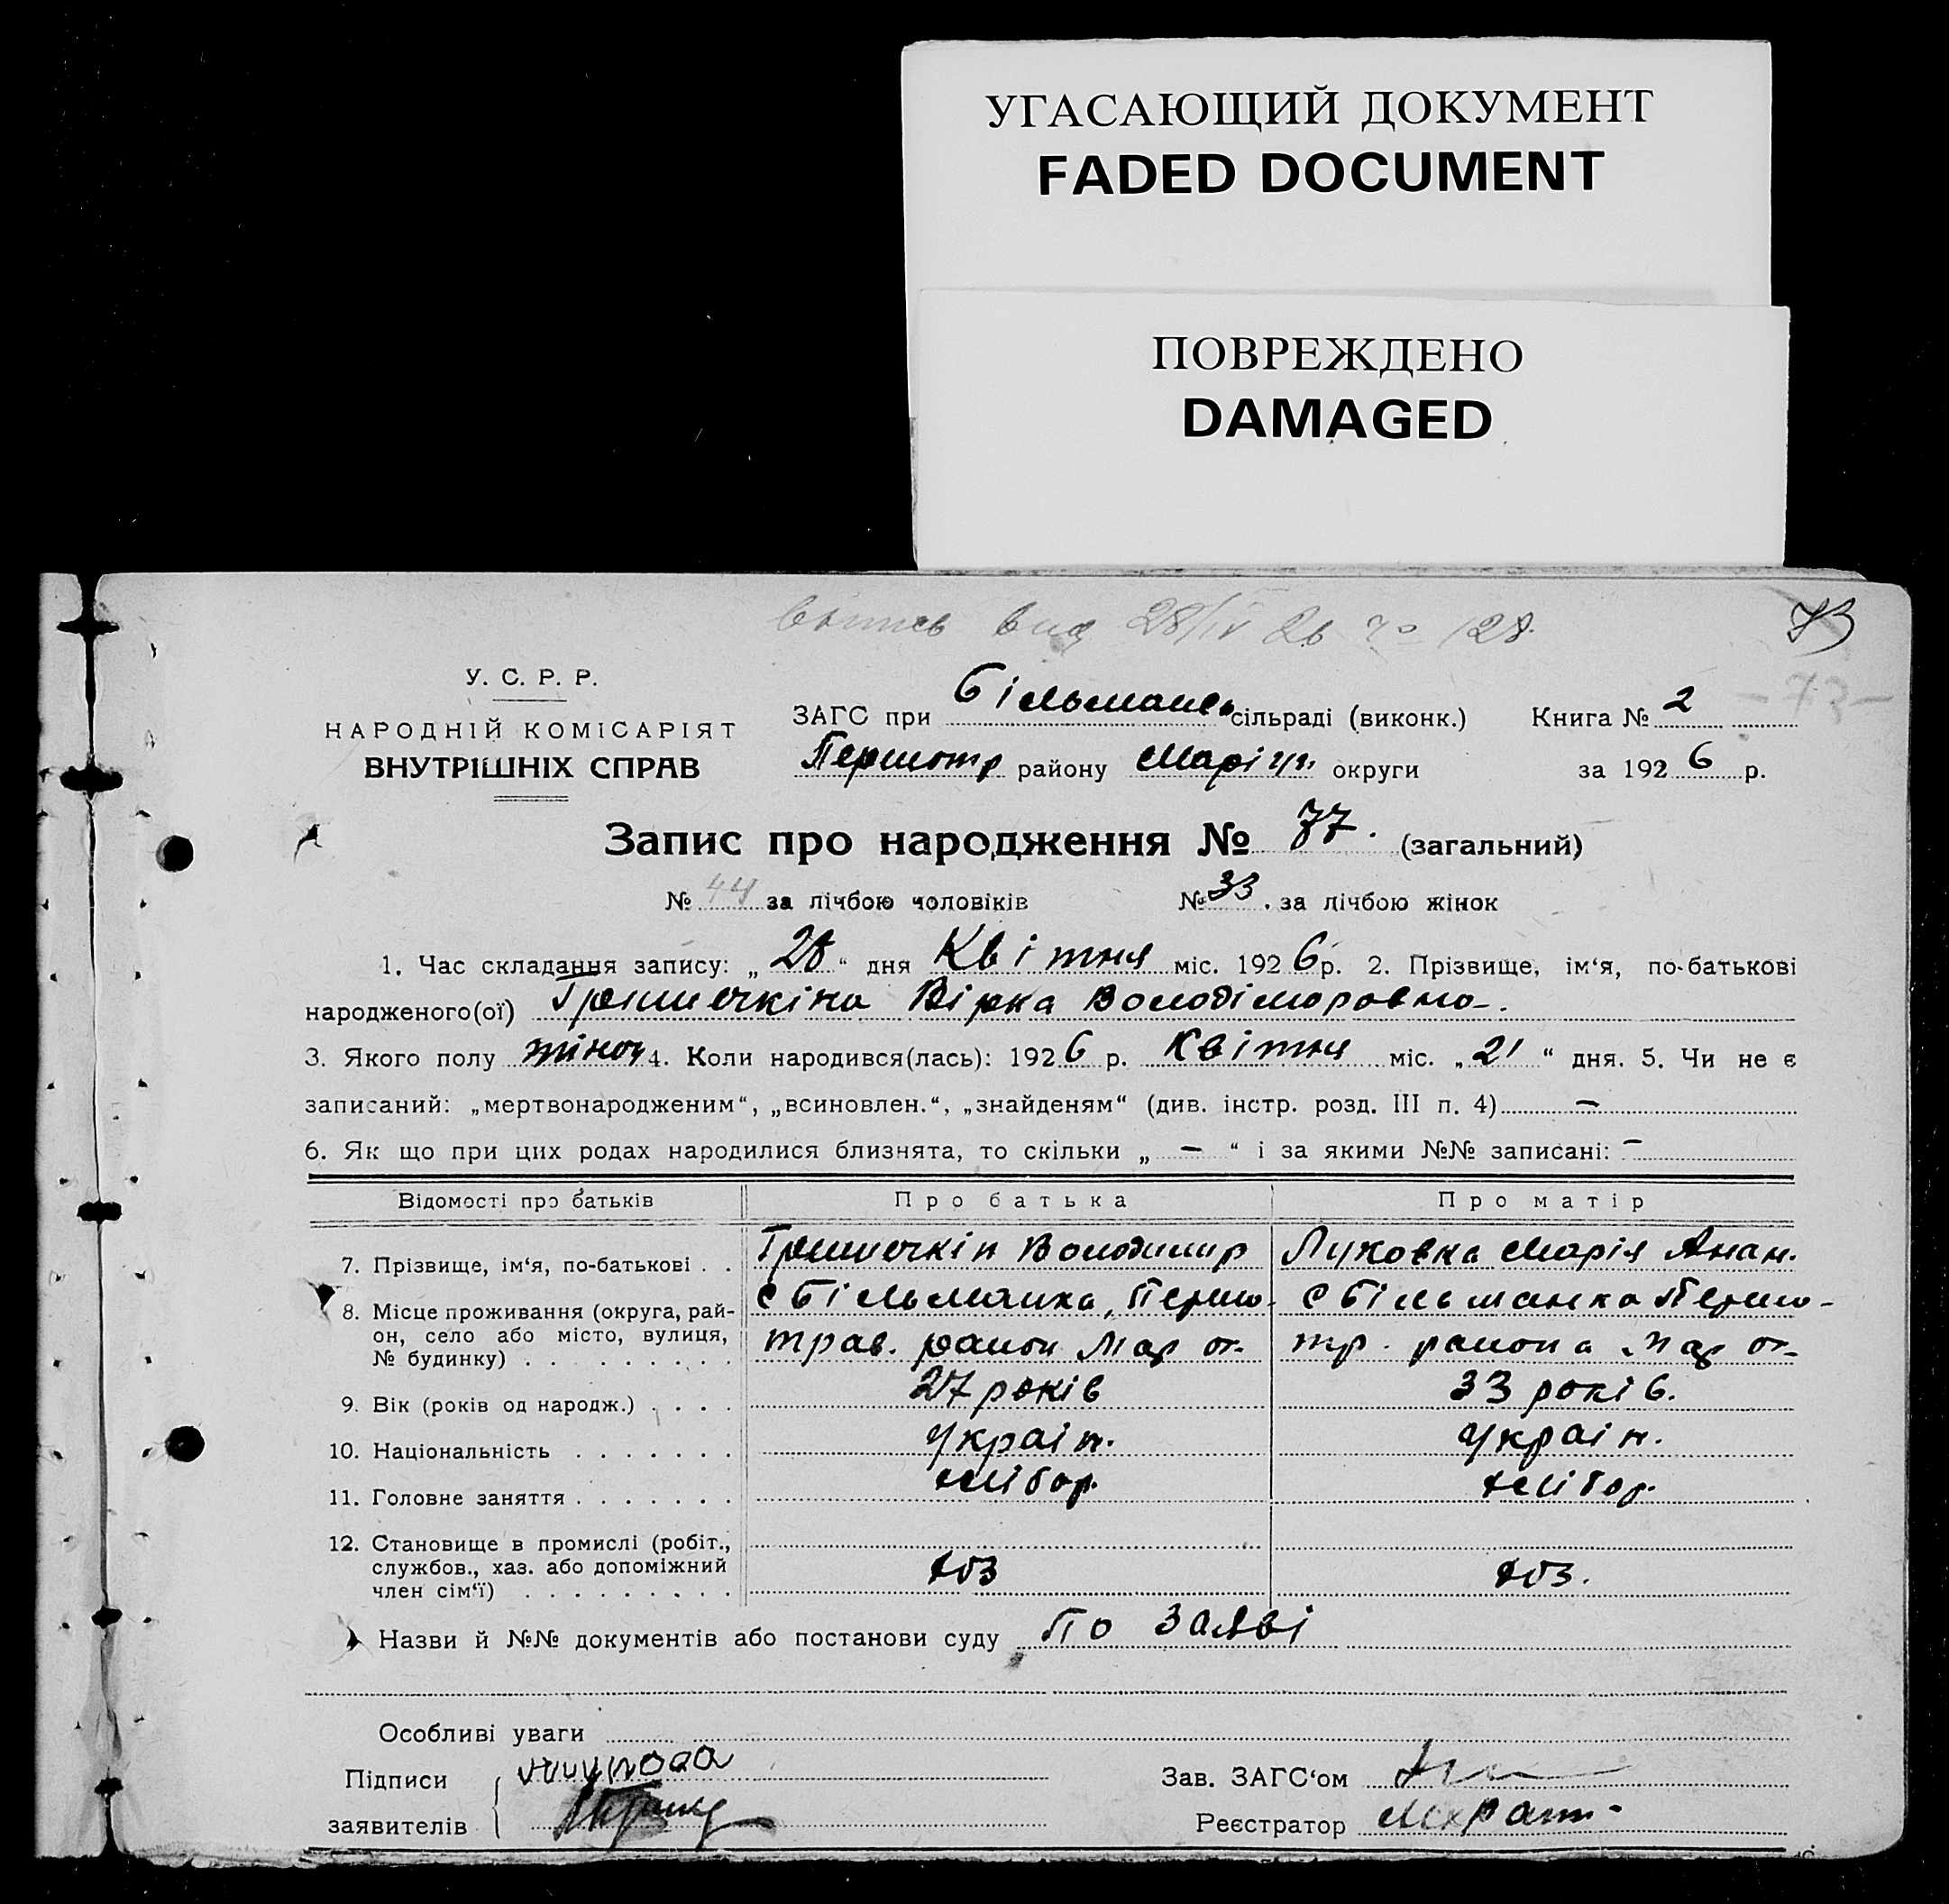 УГАСАЮЩИЙ ДОКУМЕНТ
FADED DOCUMENT
ПОВРЕЖДЕНО
DAMAGED
28/IV 26 128.
73
-73-
У. С. Р. Р.
НАРОДНІЙ КОМІСАРІЯТ
ВНУТРІШНІХ СПРАВ
ЗАГС при Більмансь сільраді (виконк.) Книга № 2
Першотр району Маріуп. округи за 192 6 р.
Запис про народження № 77. (загальний)
№ 44 за лічбою чоловіків № 33. за лічбою жінок
1. Час складання запису: „ 28 “ дня Квітня міс. 192 6 р. 2. Прізвище, ім‘я, по-батькові
народженого(ої) Вірка Володімировна.
3. Якого полу жіноч 4. Коли народився(лась): 192 6 р. Квітня міс. „ 21 “ дня. 5. Чи не є
записаний: „мертвонародженим“, „всиновлен.“, „знайденям“ (див. інстр. розд. III п. 4) —
6. Як що при цих родах народилися близнята, то скільки „ — “ і за якими №№ записані: —
Відомості про батьків Про батька Про матір
7. Прізвище, ім‘я, по-батькові . . Володимир Луковка Марія Анан.
8. Місце проживання (округа, рай- с Більманка, Першо- с Більманка Першо-
он, село або місто, вулиця, трав. район Мар ок. тр. района Мар ок.
№ будинку) . . . . . . . . .
9. Вік (років од народж.) . . . . 27 років 33 років.
10. Національність . . . . . . . україн. україн.
11. Головне заняття . . . . . . . хлібор. хлібор.
12. Становище в промислі (робіт.,
службов., хаз. або допоміжний хоз хоз.
член сім‘ї) . . . . . . . . .
Назви й №№ документів або постанови суду по заяві
Особливі уваги
Підписи Зав. ЗАГС‘ом
заявителів Реєстратор